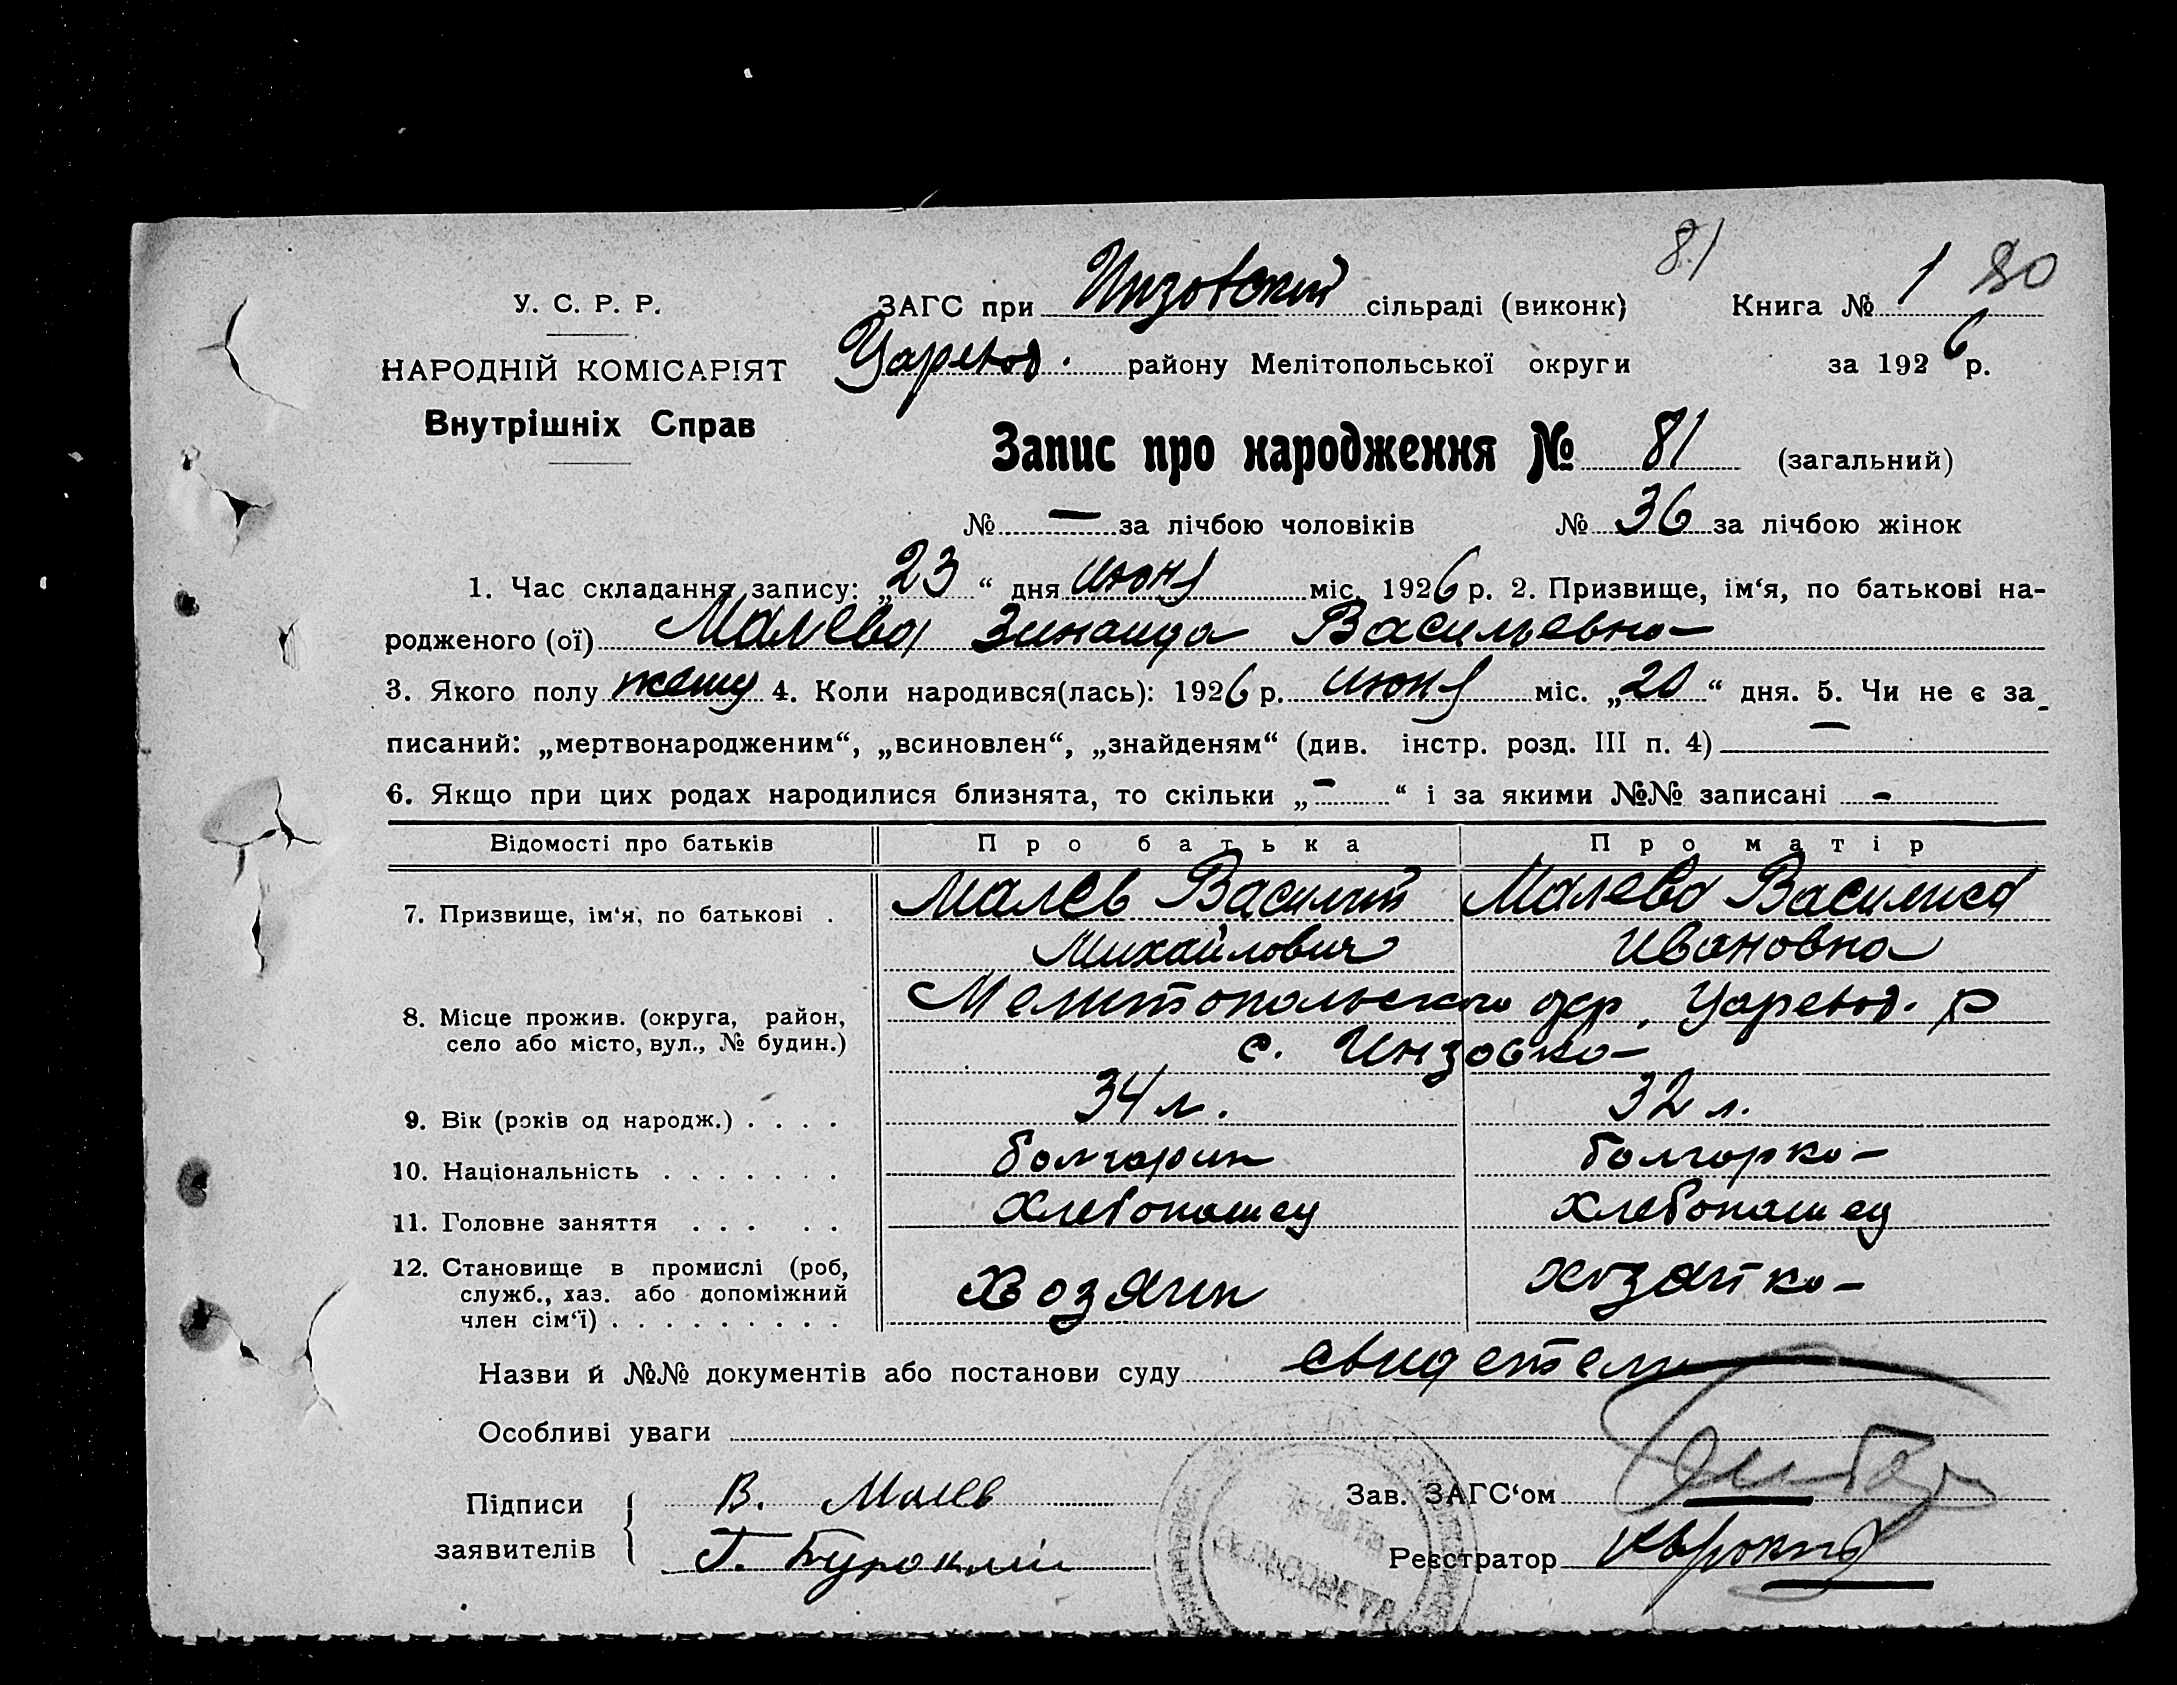 81
У. С. Р. Р. ЗАГС при Инзовский сільраді (виконк) Книга № 1 80
НАРОДНІЙ КОМІСАРІЯТ Царевод. району Мелітопольської округи за 1926 р.
Внутрішніх Справ
Запис про народження № 81 (загальний)
№ — за лічбою чоловіків № 36 за лічбою жінок
1. Час складання запису: „23“ дня июня міс. 1926 р. 2. Призвище, ім‘я, по батькові на-
родженого (ої) Малева Зинаида Васильевна
3. Якого полу 4. Коли народився(лась): 1926 р. июня міс. „20“ дня. 5. Чи не є за-
писаний: „мертвонародженим“, „всиновлен“, „знайденям“ (див. інстр. розд. III п. 4) —
6. Якщо при цих родах народилися близнята, то скільки „-“ і за якими №№ записані -
Відомості про батьків Про батька Про матір
7. Призвище, ім‘я, по батькові . Малев Василий Малева Василиса
Михайлович Ивановна
8. Місце прожив. (округа, район, Мелитопольского окр, Царевод. р
село або місто, вул., № будин.) с. Инзовка
9. Вік (років од народж.) . . . . 34 л. 32 л.
10. Національність . . . . . . . болгарин болгарка
11. Головне заняття . . . . . Хлебопашец Хлебопашец
12. Становище в промислі (роб, Хозяин хозяйка
служб., хаз. або допоміжний
член сім‘ї) . . . . . . . . .
Назви й №№ документів або постанови суду свидетели
Особливі уваги
Підписи В. Малев Зав. ЗАГС‘ом
заявителів Г. Реєстратор
СЕЛЬСОВЕТА